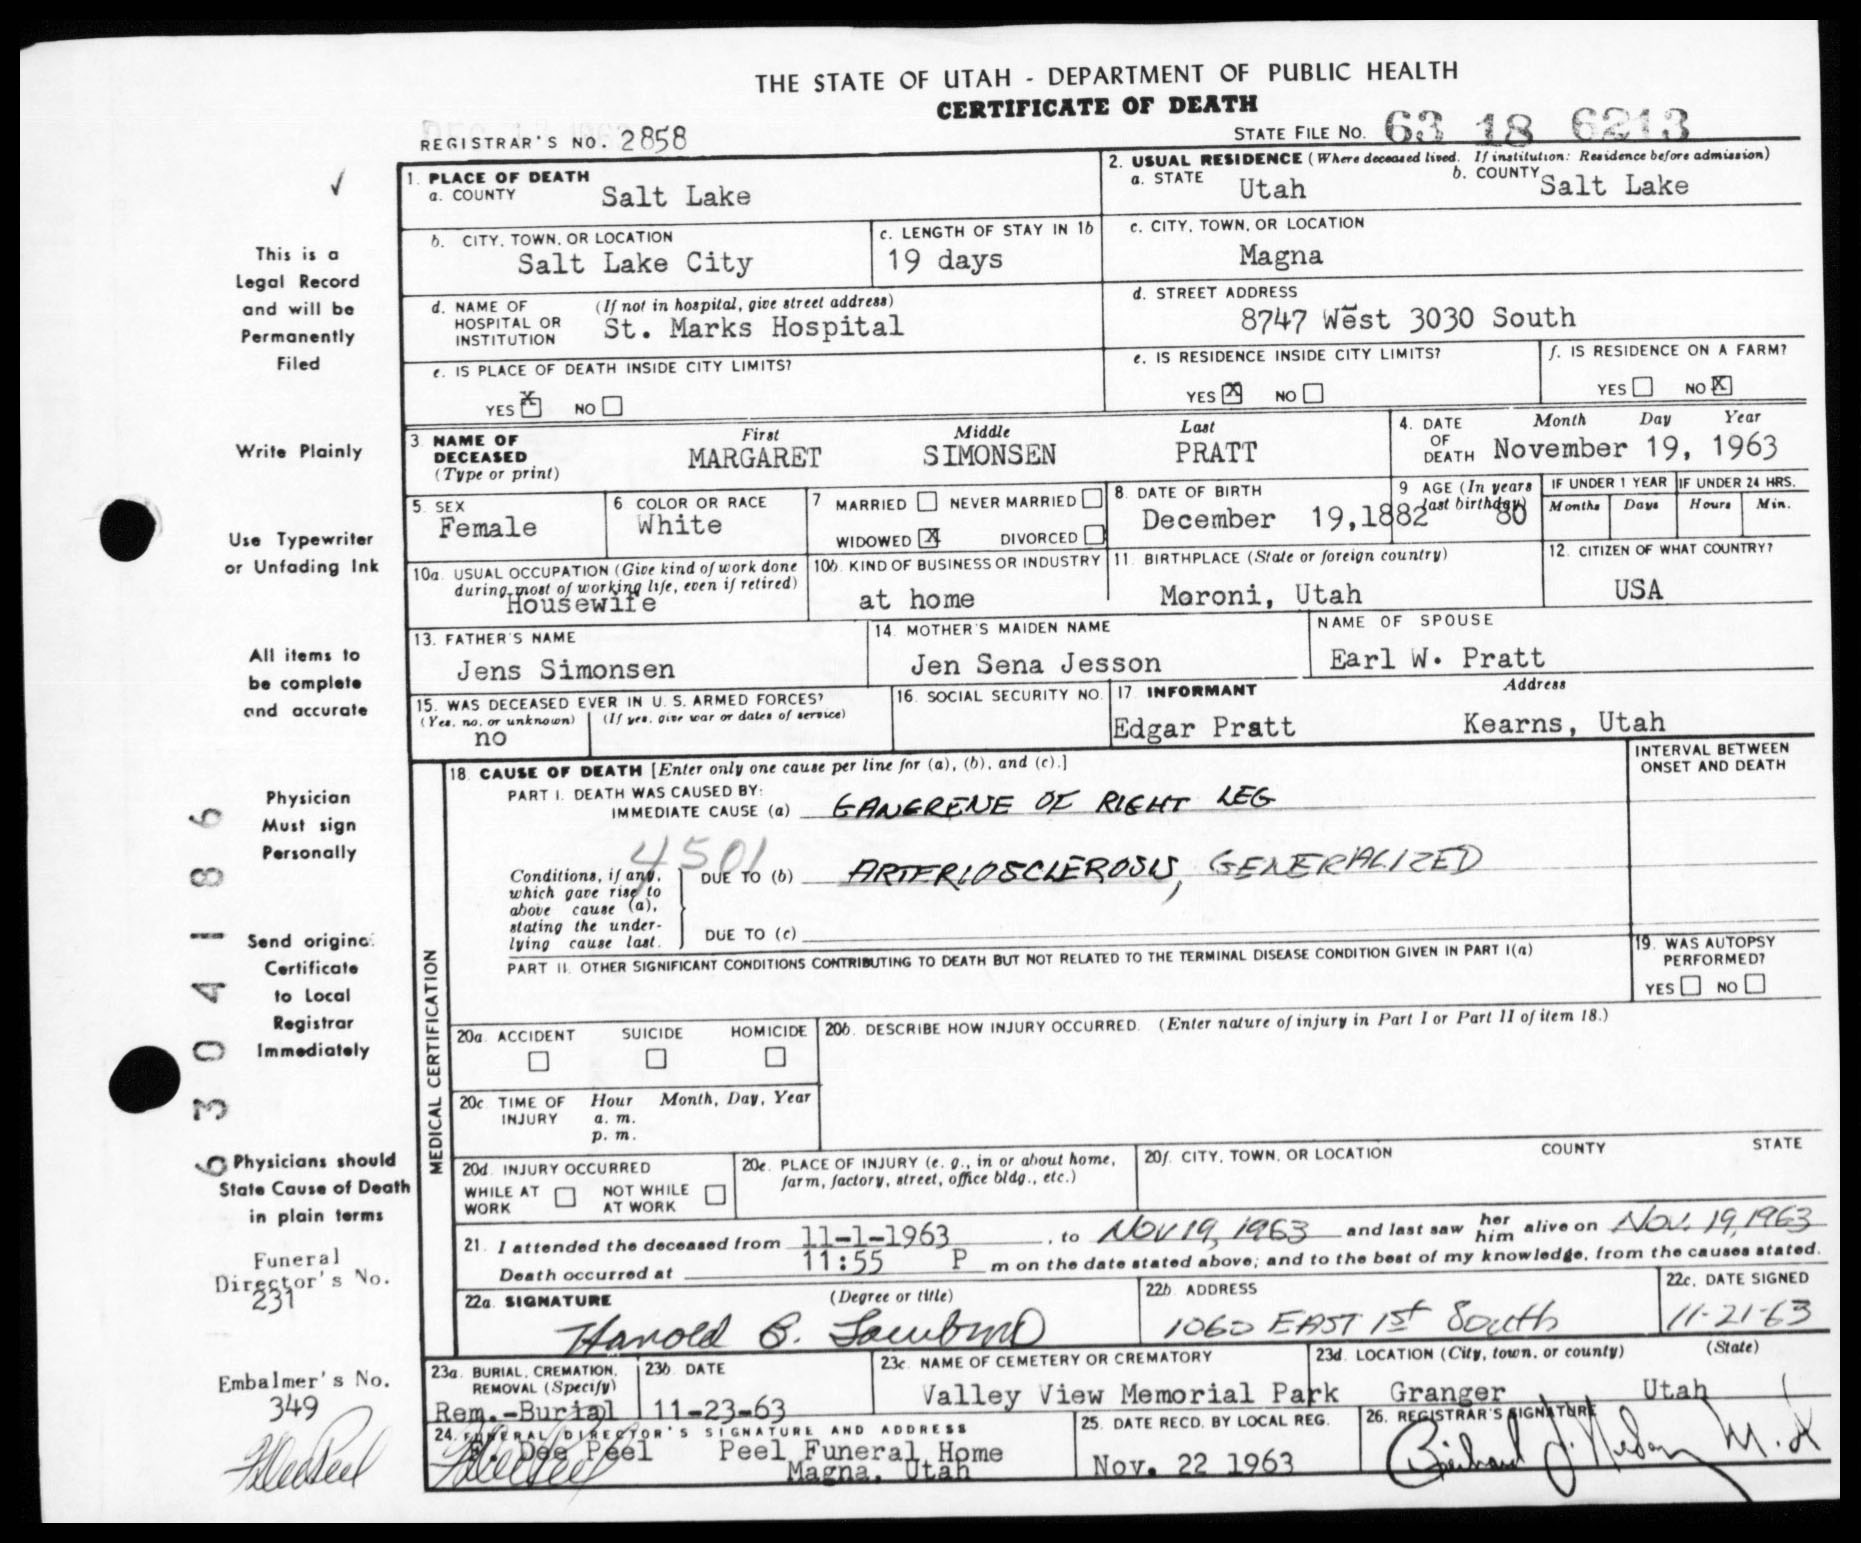 THE STATE OF UTAH - DEPARTMENT OF PUBLIC HEALTH
CERTIFICATE OF DEATH
REGISTRAR'S NO. 2858
STATE FILE NO. 63 18 6213
This is a Legal Record and will be Permanently Filed
Write Plainly
Use Typewriter or Unfading Ink
All items to be complete and accurate
Physician Must sign Personally
Send original Certificate to Local Registrar Immediately
Physicians should State Cause of Death in plain terms
Funeral Director's No. 231
Embalmer's No. 349
6 3 0 4 1 8 6
1. PLACE OF DEATH
a. COUNTY Salt Lake
2. USUAL RESIDENCE (Where deceased lived. If institution: Residence before admission)
a. STATE Utah b. COUNTY Salt Lake
b. CITY, TOWN, OR LOCATION Salt Lake City
c. LENGTH OF STAY IN 1b 19 days
c. CITY, TOWN, OR LOCATION Magna
d. NAME OF HOSPITAL OR INSTITUTION (If not in hospital, give street address) St. Marks Hospital
d. STREET ADDRESS 8747 West 3030 South
e. IS PLACE OF DEATH INSIDE CITY LIMITS? YES X NO
e. IS RESIDENCE INSIDE CITY LIMITS? YES X NO
f. IS RESIDENCE ON A FARM? YES NO X
3. NAME OF DECEASED (Type or print) First MARGARET Middle SIMONSEN Last PRATT
4. DATE OF DEATH Month Day Year November 19, 1963
5. SEX Female
6 COLOR OR RACE White
7 MARRIED NEVER MARRIED WIDOWED X DIVORCED
8. DATE OF BIRTH December 19,1882
9 AGE (In years last birthday) 80
IF UNDER 1 YEAR Months Days
IF UNDER 24 HRS. Hours Min.
10a. USUAL OCCUPATION (Give kind of work done during most of working life, even if retired) Housewife
10b. KIND OF BUSINESS OR INDUSTRY at home
11. BIRTHPLACE (State or foreign country) Moroni, Utah
12. CITIZEN OF WHAT COUNTRY? USA
13. FATHER'S NAME Jens Simonsen
14. MOTHER'S MAIDEN NAME Jen Sena Jesson
NAME OF SPOUSE Earl W. Pratt
15. WAS DECEASED EVER IN U. S. ARMED FORCES? (Yes, no, or unknown) (If yes, give war or dates of service) no
16. SOCIAL SECURITY NO.
17. INFORMANT Address
Edgar Pratt Kearns, Utah
MEDICAL CERTIFICATION
18. CAUSE OF DEATH [Enter only one cause per line for (a), (b), and (c).]
INTERVAL BETWEEN ONSET AND DEATH
PART I. DEATH WAS CAUSED BY:
IMMEDIATE CAUSE (a) GANGRENE OF RIGHT LEG
4501
Conditions, if any, which gave rise to above cause (a), stating the underlying cause last.
DUE TO (b) ARTERIOSCLEROSIS, GENERALIZED
DUE TO (c)
PART II. OTHER SIGNIFICANT CONDITIONS CONTRIBUTING TO DEATH BUT NOT RELATED TO THE TERMINAL DISEASE CONDITION GIVEN IN PART I(a)
19. WAS AUTOPSY PERFORMED? YES NO
20a. ACCIDENT SUICIDE HOMICIDE
20b. DESCRIBE HOW INJURY OCCURRED. (Enter nature of injury in Part I or Part II of item 18.)
20c. TIME OF INJURY Hour a. m. p. m. Month, Day, Year
20d. INJURY OCCURRED WHILE AT WORK NOT WHILE AT WORK
20e. PLACE OF INJURY (e. g., in or about home, farm, factory, street, office bldg., etc.)
20f. CITY, TOWN, OR LOCATION COUNTY STATE
21. I attended the deceased from 11-1-1963, to Nov 19, 1963 and last saw her him alive on Nov. 19, 1963
Death occurred at 11:55 P m on the date stated above; and to the best of my knowledge, from the causes stated.
22a. SIGNATURE (Degree or title) Harold B.
22b. ADDRESS 1060 EAST 1st South
22c. DATE SIGNED 11-21-63
23a. BURIAL, CREMATION, REMOVAL (Specify) Rem.-Burial
23b. DATE 11-23-63
23c. NAME OF CEMETERY OR CREMATORY Valley View Memorial Park
23d. LOCATION (City, town, or county) (State) Granger Utah
24. FUNERAL DIRECTOR'S SIGNATURE AND ADDRESS
Dee Peel Peel Funeral Home
Magna, Utah
25. DATE RECD. BY LOCAL REG. Nov. 22 1963
26. REGISTRAR'S SIGNATURE